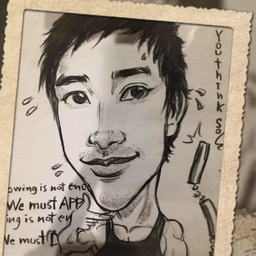 You think so?
owing is not eno
We must APP
ing is not en
We must D